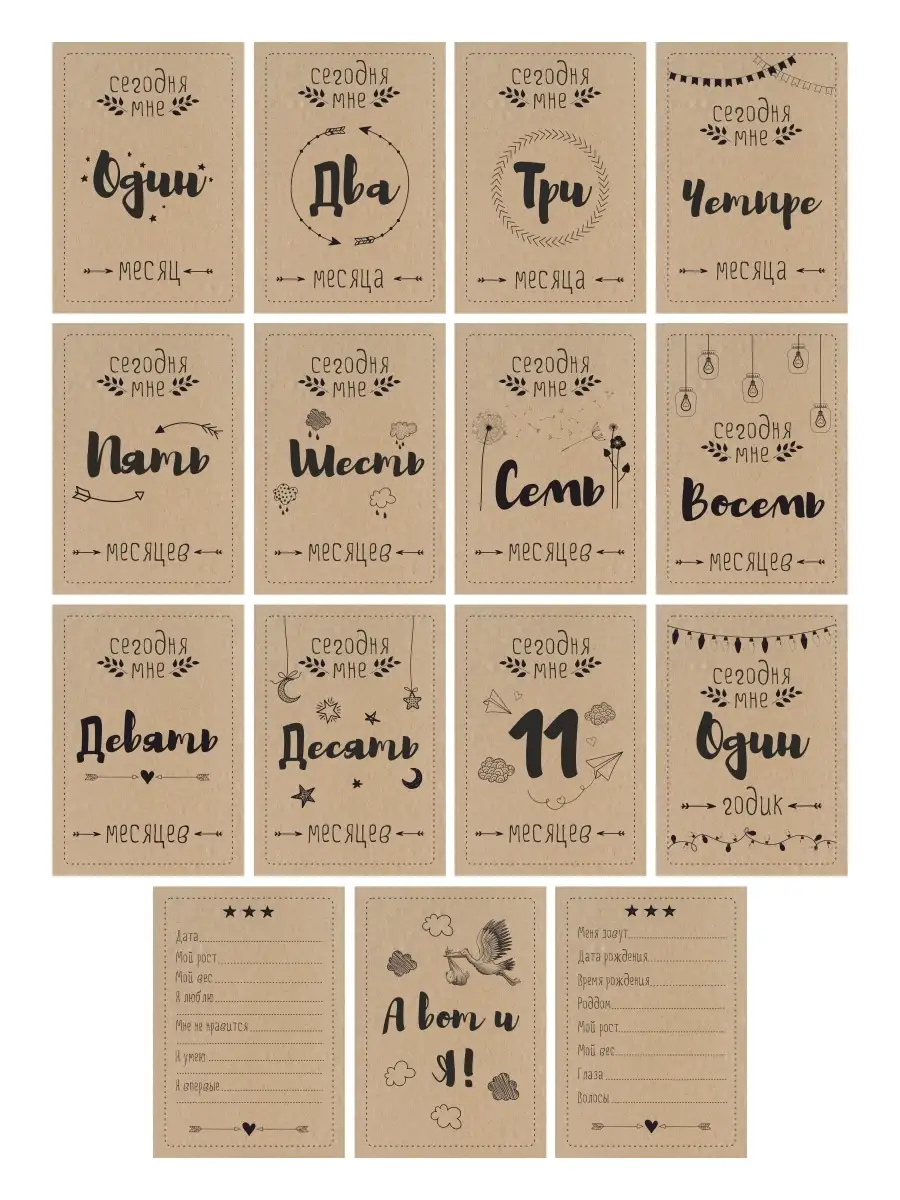 сегодня
мне
Один
месяц
сегодня
мне
Два
месяца
сегодня
мне
Три
месяца
сегодня
мне
Четыре
месяца
сегодня
мне
Пять
месяцев
сегодня
мне
Шесть
месяцев
сегодня
мне
Семь
месяцев
сегодня
мне
Восемь
месяцев
сегодня
мне
Девять
месяцев
сегодня
мне
Десять
месяцев
сегодня
мне
11
месяцев
сегодня
мне
Один
годик
Дата
Мой рост
Мой вес
Я люблю
Мне не нравится
Я умею
Я впервые
А вот и
Я!
Меня зовут
Дата рождения
Время рождения
Роддом
Мой рост
Мой вес
Глаза
Волосы